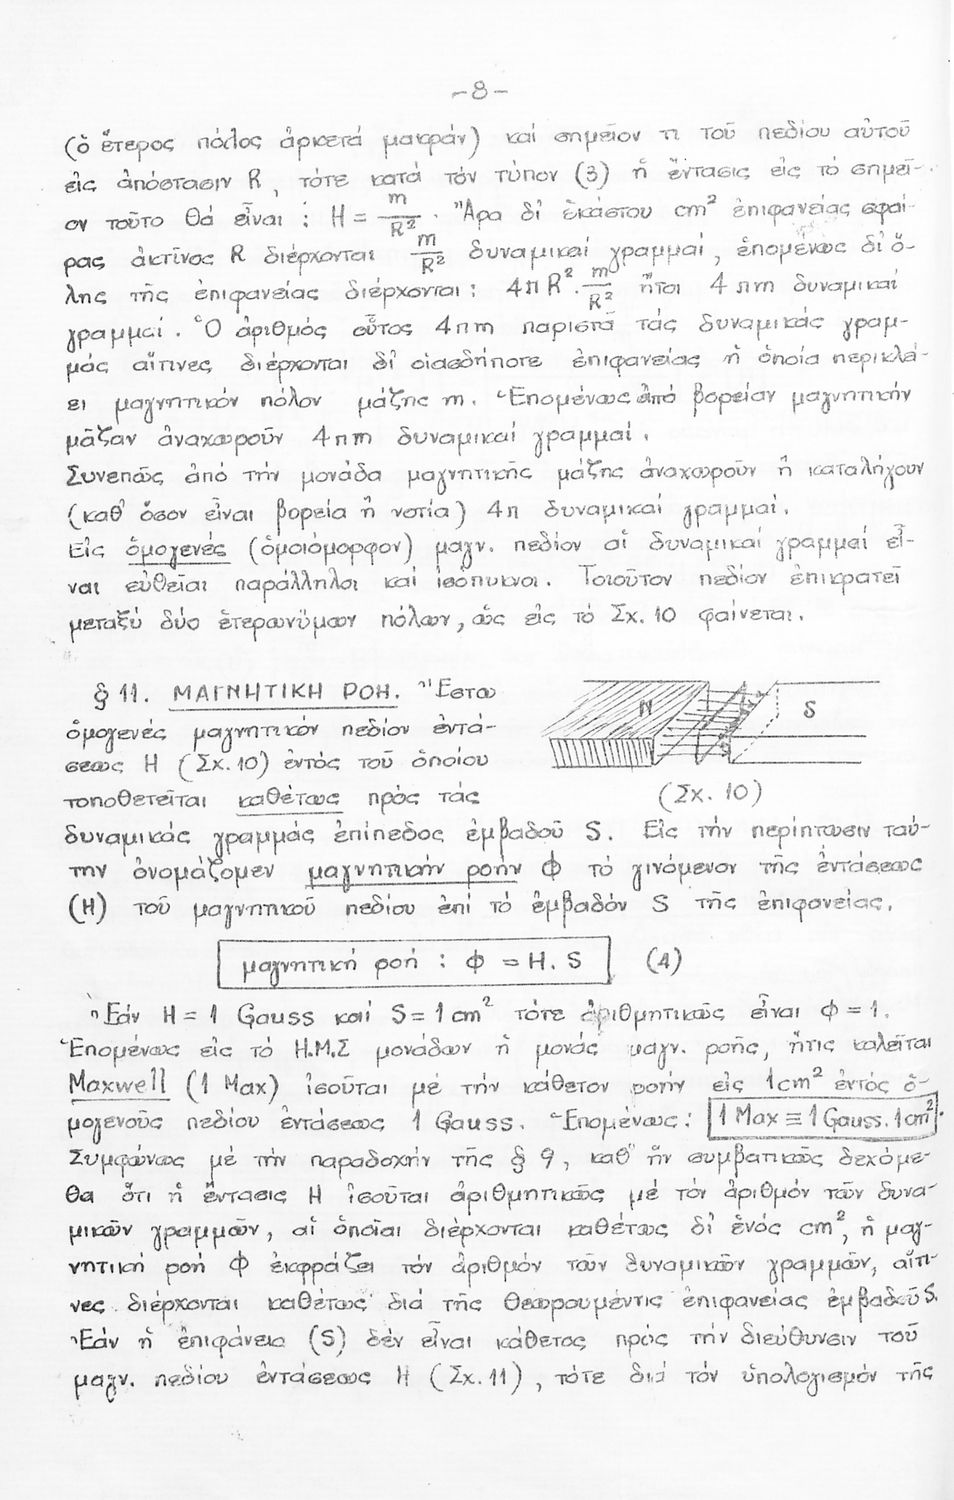 -8-
(ὁ ἕτερος πόλος ἀρκετά μακράν) καί σημεῖον τι τοῦ πεδίου αὐτοῦ
εἰς ἀπόστασιν R, τότε κατά τόν τύπον (3) ἡ ἔντασις εἰς τό σημεῖ-
ον τοῦτο θά εἶναι : H = m/R². Ἄρα δι' ἑκάστου cm² ἐπιφανείας σφαί-
ρας ἀκτῖνος R διέρχονται m/R² δυναμικαί γραμμαί, ἑπομένως δι' ὅ-
λης τῆς ἐπιφανείας διέρχονται: 4πR². m/R² ἤτοι 4πm δυναμικαί
γραμμαί. Ὁ ἀριθμός οὗτος 4πm παριστᾶ τάς δυναμικάς γραμ-
μάς αἵτινες διέρχονται δι' οἱασδήποτε ἐπιφανείας ἡ ὁποία περικλεί-
ει μαγνητικόν πόλον μάζης m. Ἑπομένως ἀπό βορείαν μαγνητικήν
μᾶζαν ἀναχωροῦν 4πm δυναμικαί γραμμαί.
Συνεπῶς ἀπό τήν μονάδα μαγνητικῆς μάζης ἀναχωροῦν ἤ καταλήγουν
(καθ' ὅσον εἶναι βορεία ἤ νοτία) 4π δυναμικαί γραμμαί.
Εἰς ὁμογενές (ὁμοιόμορφον) μαγν. πεδίον αἱ δυναμικαί γραμμαί εἶ-
ναι εὐθεῖαι παράλληλοι καί ἰσόπυκνοι. Τοιοῦτον πεδίον ἐπικρατεῖ
μεταξύ δύο ἑτερωνύμων πόλων, ὡς εἰς τό Σχ. 10 φαίνεται.
§ 11. ΜΑΓΝΗΤΙΚΗ ΡΟΗ. Ἔστω
ὁμογενές μαγνητικόν πεδίον ἐντά-
σεως H (Σχ. 10) ἐντός τοῦ ὁποίου
τοποθετεῖται καθέτως πρός τάς
N S
(Σχ. 10)
δυναμικάς γραμμάς ἐπίπεδος ἐμβαδοῦ S. Εἰς τήν περίπτωσιν ταύ-
την ὀνομάζομεν μαγνητικήν ροήν Φ τό γινόμενον τῆς ἐντάσεως
(H) τοῦ μαγνητικοῦ πεδίου ἐπί τό ἐμβαδόν S τῆς ἐπιφανείας.
μαγνητική ροή : Φ = H. S (4)
Ἐάν H = 1 Gauss καί S = 1 cm² τότε ἀριθμητικῶς εἶναι Φ = 1.
Ἑπομένως εἰς τό Η.Μ.Σ μονάδων ἡ μονάς μαγν. ροῆς, ἥτις καλεῖται
Maxwell (1 Max) ἰσοῦται μέ τήν κάθετον ροήν εἰς 1cm² ἐντός ὁ-
μογενοῦς πεδίου ἐντάσεως 1 Gauss. Ἑπομένως: 1 Max ≡ 1 Gauss. 1cm².
Συμφώνως μέ τήν παραδοχήν τῆς § 9, καθ' ἥν συμβατικῶς δεχόμε-
θα ὅτι ἡ ἔντασις H ἰσοῦται ἀριθμητικῶς μέ τόν ἀριθμόν τῶν δυνα-
μικῶν γραμμῶν, αἱ ὁποῖαι διέρχονται καθέτως δι' ἑνός cm², ἡ μαγ-
νητική ροή Φ ἐκφράζει τόν ἀριθμόν τῶν δυναμικῶν γραμμῶν, αἵτι-
νες διέρχονται καθέτως διά τῆς θεωρουμένης ἐπιφανείας ἐμβαδοῦ S.
Ἐάν ἡ ἐπιφάνεια (S) δέν εἶναι κάθετος πρός τήν διεύθυνσιν τοῦ
μαγν. πεδίου ἐντάσεως H (Σχ. 11), τότε διά τόν ὑπολογισμόν τῆς